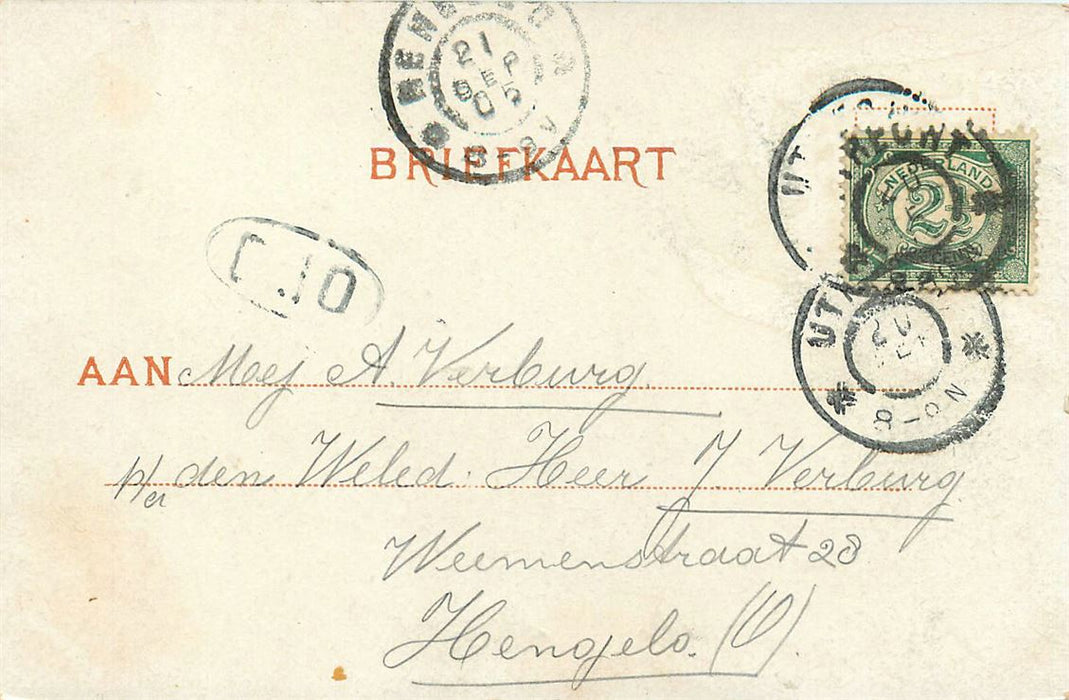 HENGELO
21
SEP
05
8-9V
BRIEFKAART
UTRECHT
NEDERLAND
2½
CENT
UTRECHT
20
8-9N
AAN Mej A. Verburg.
p/a den Weled: Heer J. Verburg.
Weemenstraat 28
Hengelo. (O).